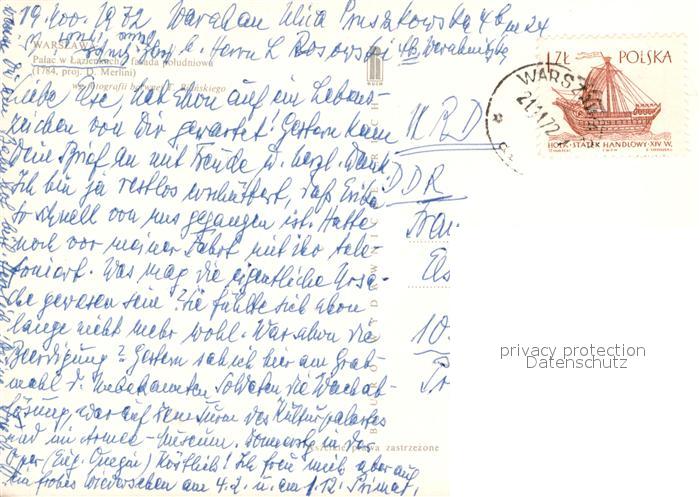 19. Nov. 1972 Warschau Ulica Pruszkowska 4b m 24
b. Herrn L. Rosowski
WARSZAWA
Pałac w Łazienkach, fasada południowa
(1784, proj. D. Merlini)
wg fotografii barwnej
RUCH
Liebe Else, hab schon auf ein Lebens-
zeichen von Dir gewartet! Gestern kam
Dein Brief an mit Freude u. herzl. Dank
Ich bin ja restlos erschüttert, daß Erika
so schnell von uns gegangen ist. Hatte
noch vor meiner Fahrt mit ihr tele-
foniert. Was mag die eigentliche Ursa-
che gewesen sein? Sie fühlte sich schon
lange nicht mehr wohl. War schon die
Beerdigung? Gestern sah ich hier am Grab-
mahl d. Unbekannten Soldaten die Wachab-
lösung, war auf dem Turm des Kulturpalastes
und im Armee-Museum. Sonntag in der
Oper (Eug. Onegin) Köstlich! Ich freu mich aber auf
ein frohes Wiedersehen am 4.2. u. am 1.12.
BIURO WYDAWNICZE RUCH
Wszelkie prawa zastrzeżone
NRD
DDR
Frau
Els
10.
1 ZŁ POLSKA
HOLK - STATEK HANDLOWY - XIV W.
WARSZAWA
21.11.72
privacy protection
Datenschutz